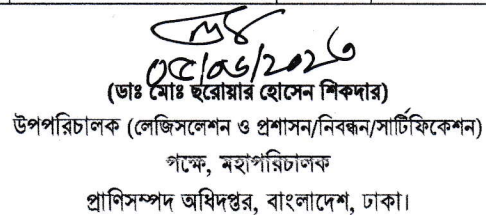 ০৫/০৬/২০২৩
(ডাঃ মোঃ ছরোয়ার হোসেন শিকদার)
উপপরিচালক (লেজিসলেশন ও প্রশাসন/নিবন্ধন/সার্টিফিকেশন)
পক্ষে, মহাপরিচালক
প্রাণিসম্পদ অধিদপ্তর, বাংলাদেশ, ঢাকা।